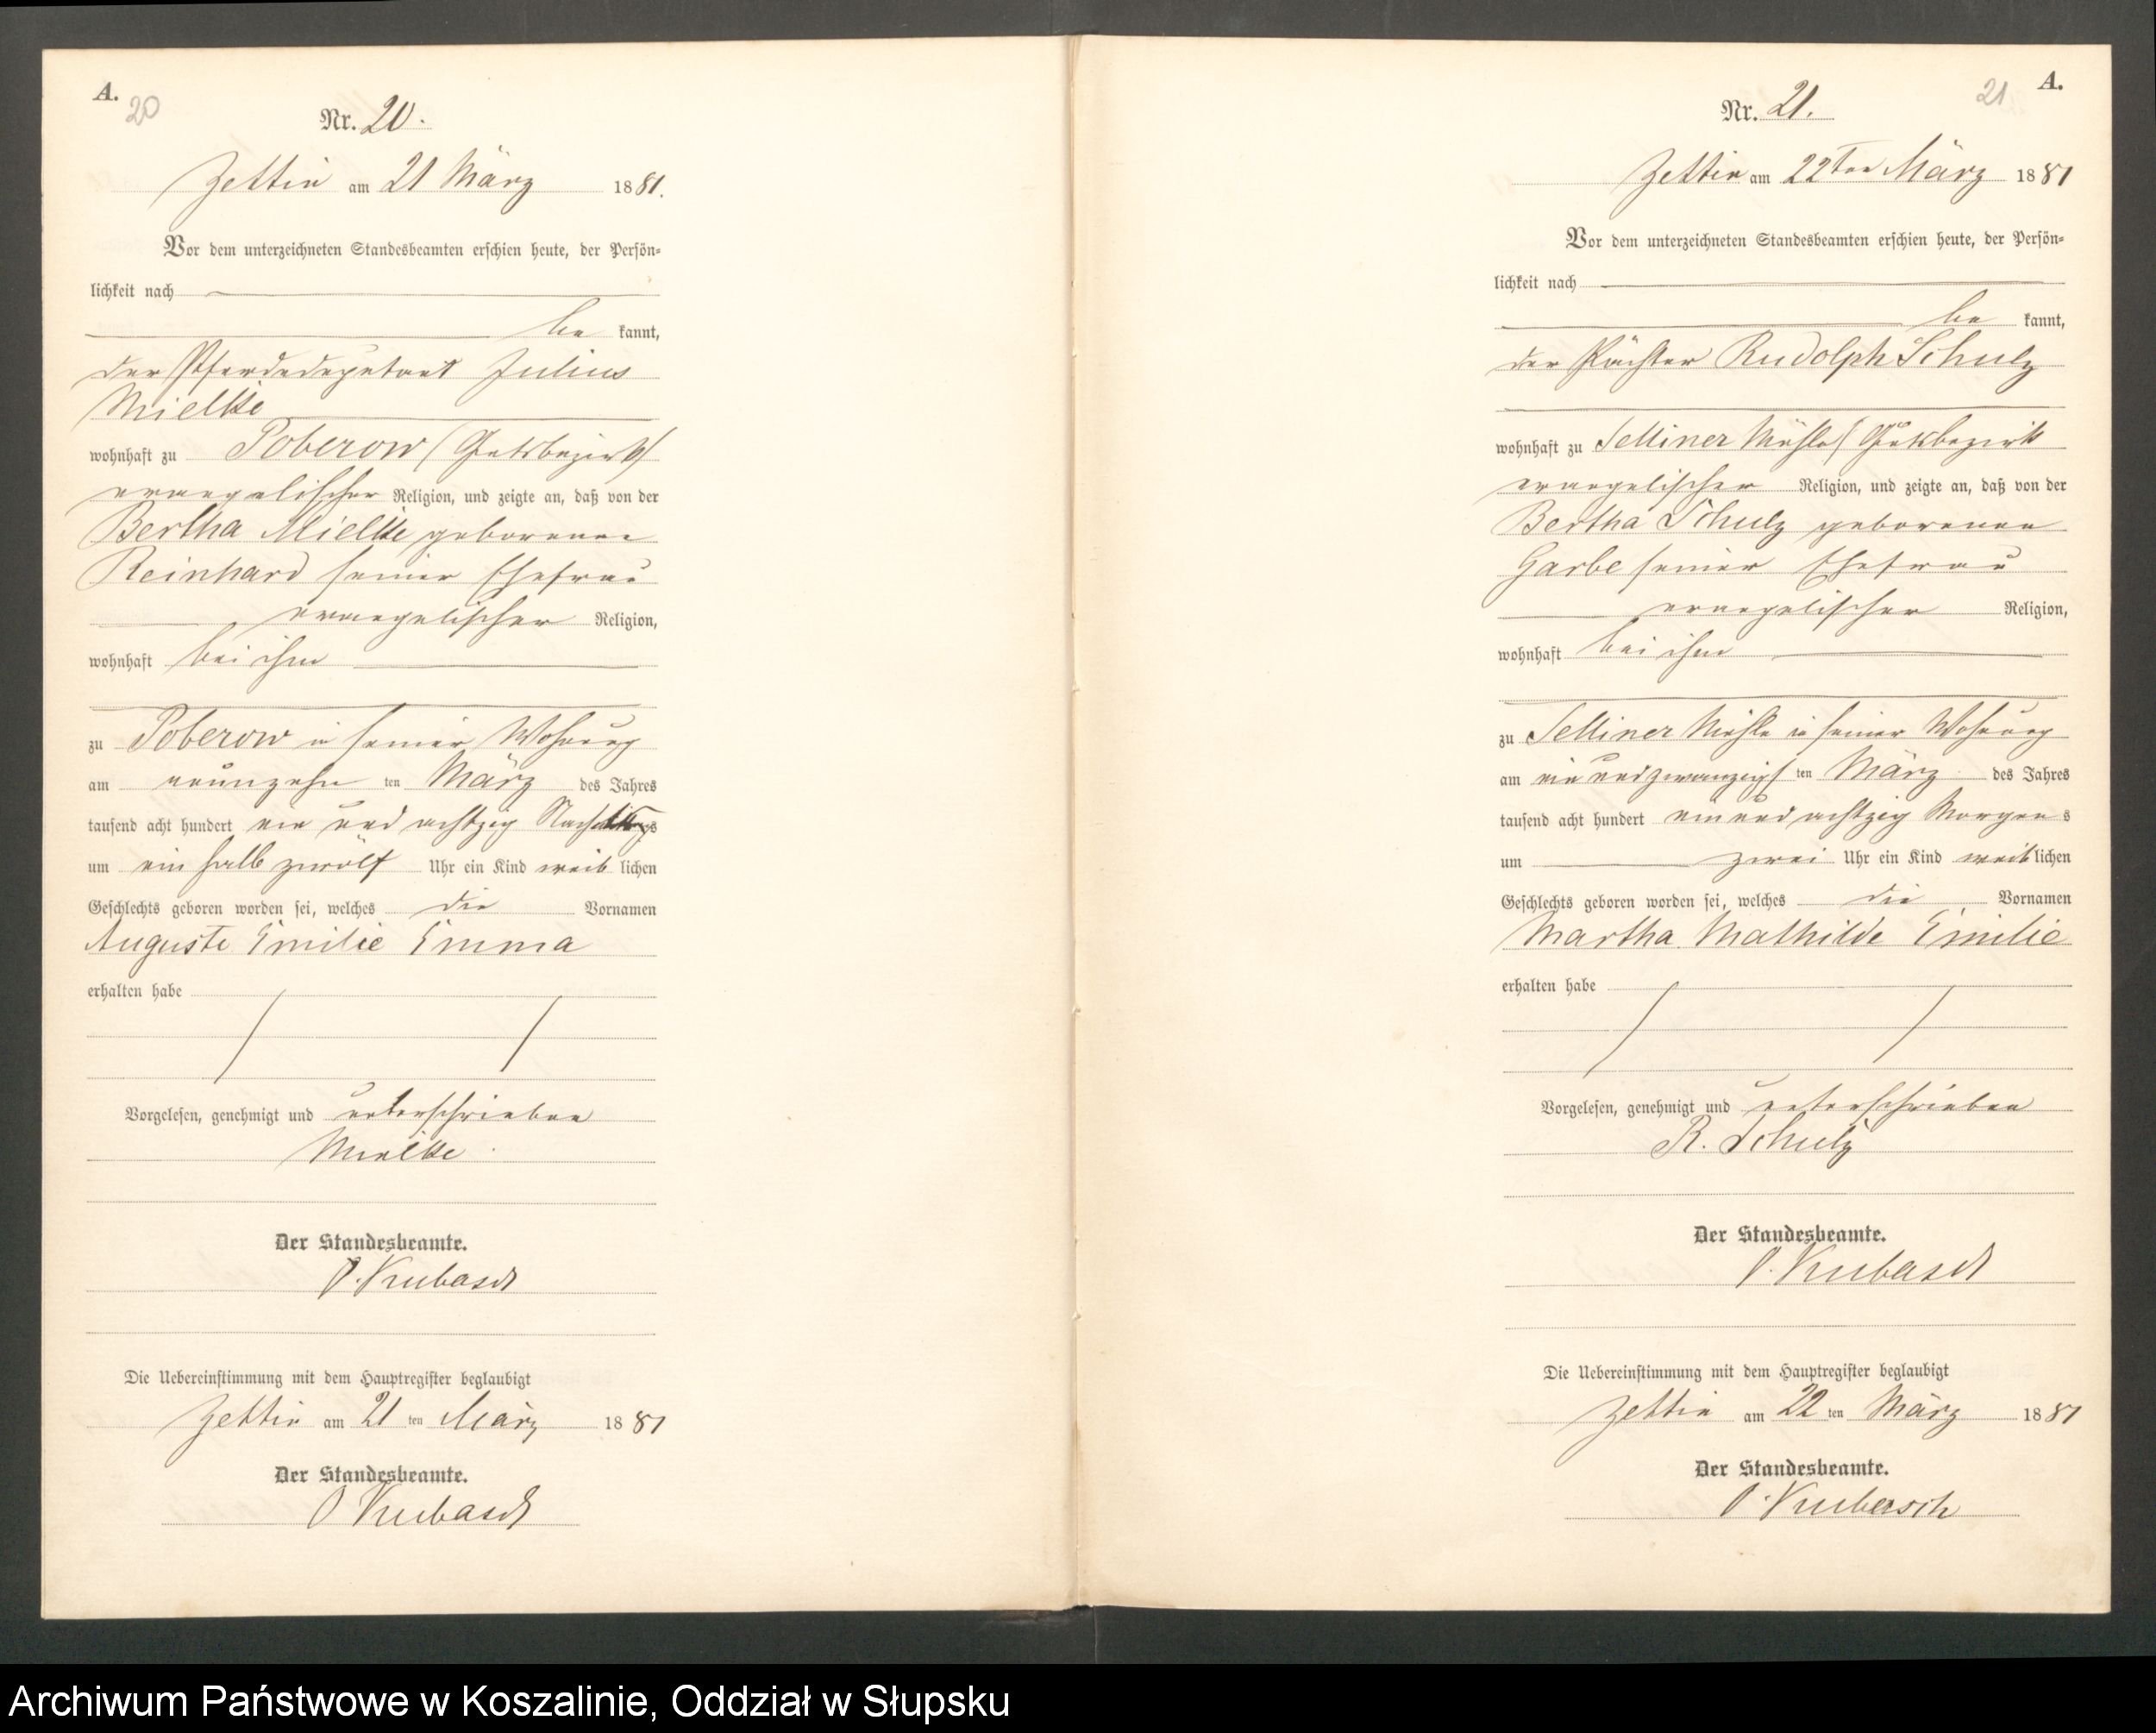 A.
20
Nr. 20.
Zettin am 21 März 1881.
Vor dem unterzeichneten Standesbeamten erschien heute, der Persön-
lichkeit nach
be kannt,
der Pferdedeputant Julius
Mielke
wohnhaft zu Poberow (Gutsbezirk)
evangelischer Religion, und zeigte an, daß von der
Bertha Mielke geborenen
Reinhard seiner Ehefrau
evangelischer Religion,
wohnhaft bei ihm
zu Poberow in seiner Wohnung
am neunzehn ten März des Jahres
tausend acht hundert ein und achtzig Nachmittags
um ein halb zwölf Uhr ein Kind weib lichen
Geschlechts geboren worden sei, welches die Vornamen
Auguste Emilie Emma
erhalten habe
Vorgelesen, genehmigt und unterschrieben
Mielke
Der Standesbeamte.
O. Kubasch
Die Uebereinstimmung mit dem Hauptregister beglaubigt
Zettin am 21 ten März 1881
Der Standesbeamte.
O Kubasch
21
A.
Nr. 21.
Zettin am 22ten März 1881
Vor dem unterzeichneten Standesbeamten erschien heute, der Persön-
lichkeit nach
be kannt,
der Pächter Rudolph Schulz
wohnhaft zu Selliner Mühle (Gutsbezirk
evangelischer Religion, und zeigte an, daß von der
Bertha Schulz geborenen
Garbe seiner Ehefrau
evangelischer Religion,
wohnhaft bei ihm
zu Selliner Mühle in seiner Wohnung
am ein und zwanzigs ten März des Jahres
tausend acht hundert ein und achtzig Morgens
um zwei Uhr ein Kind weib lichen
Geschlechts geboren worden sei, welches die Vornamen
Martha Mathilde Emilie
erhalten habe
Vorgelesen, genehmigt und unterschrieben
R. Schulz
Der Standesbeamte.
O. Kubasch
Die Uebereinstimmung mit dem Hauptregister beglaubigt
Zettin am 22 ten März 1881
Der Standesbeamte.
O. Kubasch
Archiwum Państwowe w Koszalinie, Oddział w Słupsku